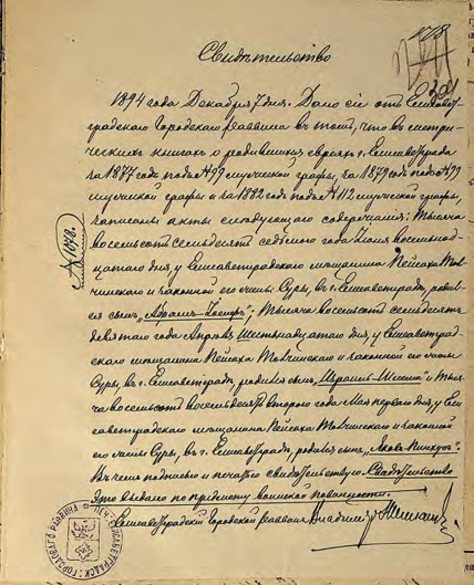 178
201
Свидѣтельство
1894 года Декабря 7 дня. Дано сіе отъ Елисавет-
градскаго Городскаго Раввина въ томъ, что въ метри-
ческихъ книгахъ о родившихся евреяхъ г. Елисаветграда
за 1877 годъ подъ № 99 мужеской графы, за 1879 годъ подъ № 99
мужеской графы и за 1882 годъ подъ № 112 мужеской графы,
записаны акты слѣдующаго содержанія: Тысяча
восемьсотъ семьдесятъ седьмого года Іюля восемнад-
цатаго дня, у Елисаветградскаго мѣщанина Пейсаха Тов-
чинскаго и законной его жены Суры, въ г. Елисаветградѣ, родил-
ся сынъ „Абрамъ-Іосифъ"; Тысяча восемьсотъ семьдесятъ
девятаго года Апрѣля Шестнадцатаго дня, у Елисаветград-
скаго мѣщанина Пейсаха Товчинскаго и законной его жены
Суры, въ г. Елисаветградѣ, родился сынъ „Израиль-" и Тыся-
ча восемьсотъ восемьдесятъ второго года Мая перваго дня, у Ели-
саветградскаго мѣщанина Пейсаха Товчинскаго и законной
его жены Суры, въ г. Елисаветградѣ, родился сынъ „Яковъ-Пинхусъ".
Въ чемъ подписью и печатью свидѣтельствую. Свидѣтельство
это выдано по предмету воинской повинности.
Елисаветградскій Городской Раввинъ Владимиръ
№ 1078.
ПЕЧ. ЕЛИСАВЕТГРАДСК. ГОРОДОВАГО РАВВИНА